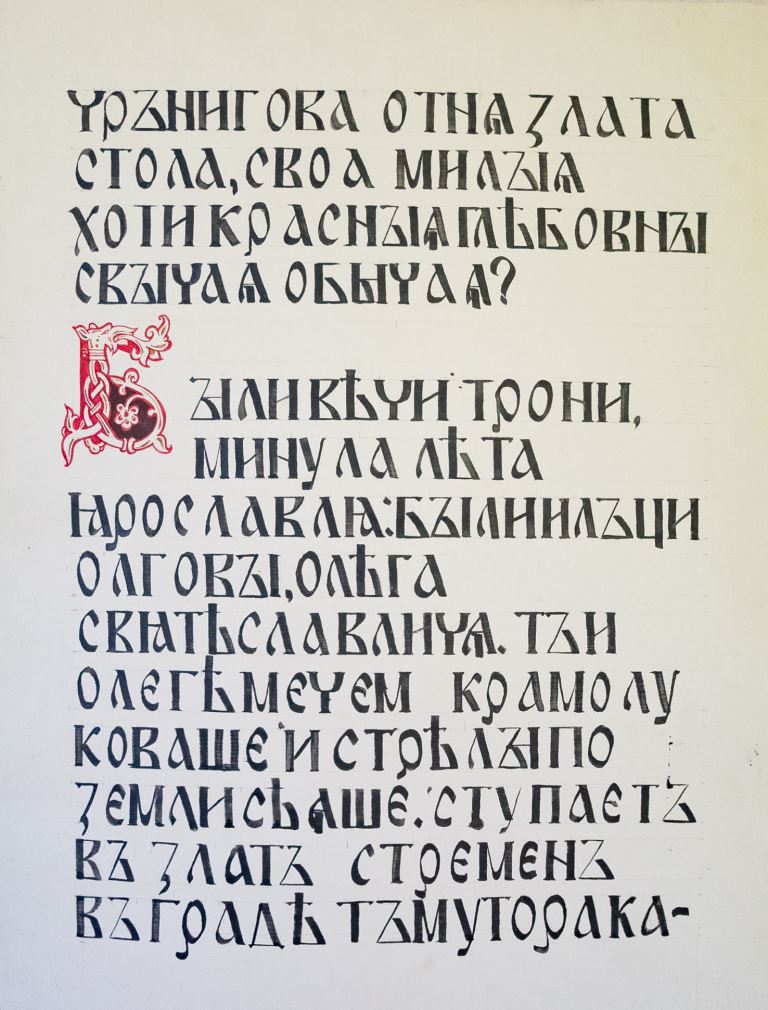 ЧРЪНИГОВА ОТНѦ ЗЛАТА
СТОЛА, СВОА МИЛЪІѦ
ХОТИ КРАСНЪІѦ ГЛѢБОВНЪІ
СВЪІЧАѦ ОБЫЧАѦ?
БЪІЛИ ВѢЧИ ТРОНИ,
МИНУЛА ЛѢТА
ꙖРОСЛАВЛѨ: БЪІЛИ ИЛЪЦИ
ОЛГОВЪІ, ОЛѢГА
СВꙖТѢСЛАВЛИЧѦ. ТЪИ
ОЛЕГѢ МЕЧЕМ КРАМОЛУ
КОВАШЕ И СТРѢЛЪІ ПО
ЗЕМЛИ СѢѦШЕ. СТУПАЕТЪ
ВЪ ЗЛАТЪ СТРЕМЕНЪ
ВЪ ГРАДѢ ТЪМУТОРАКА-